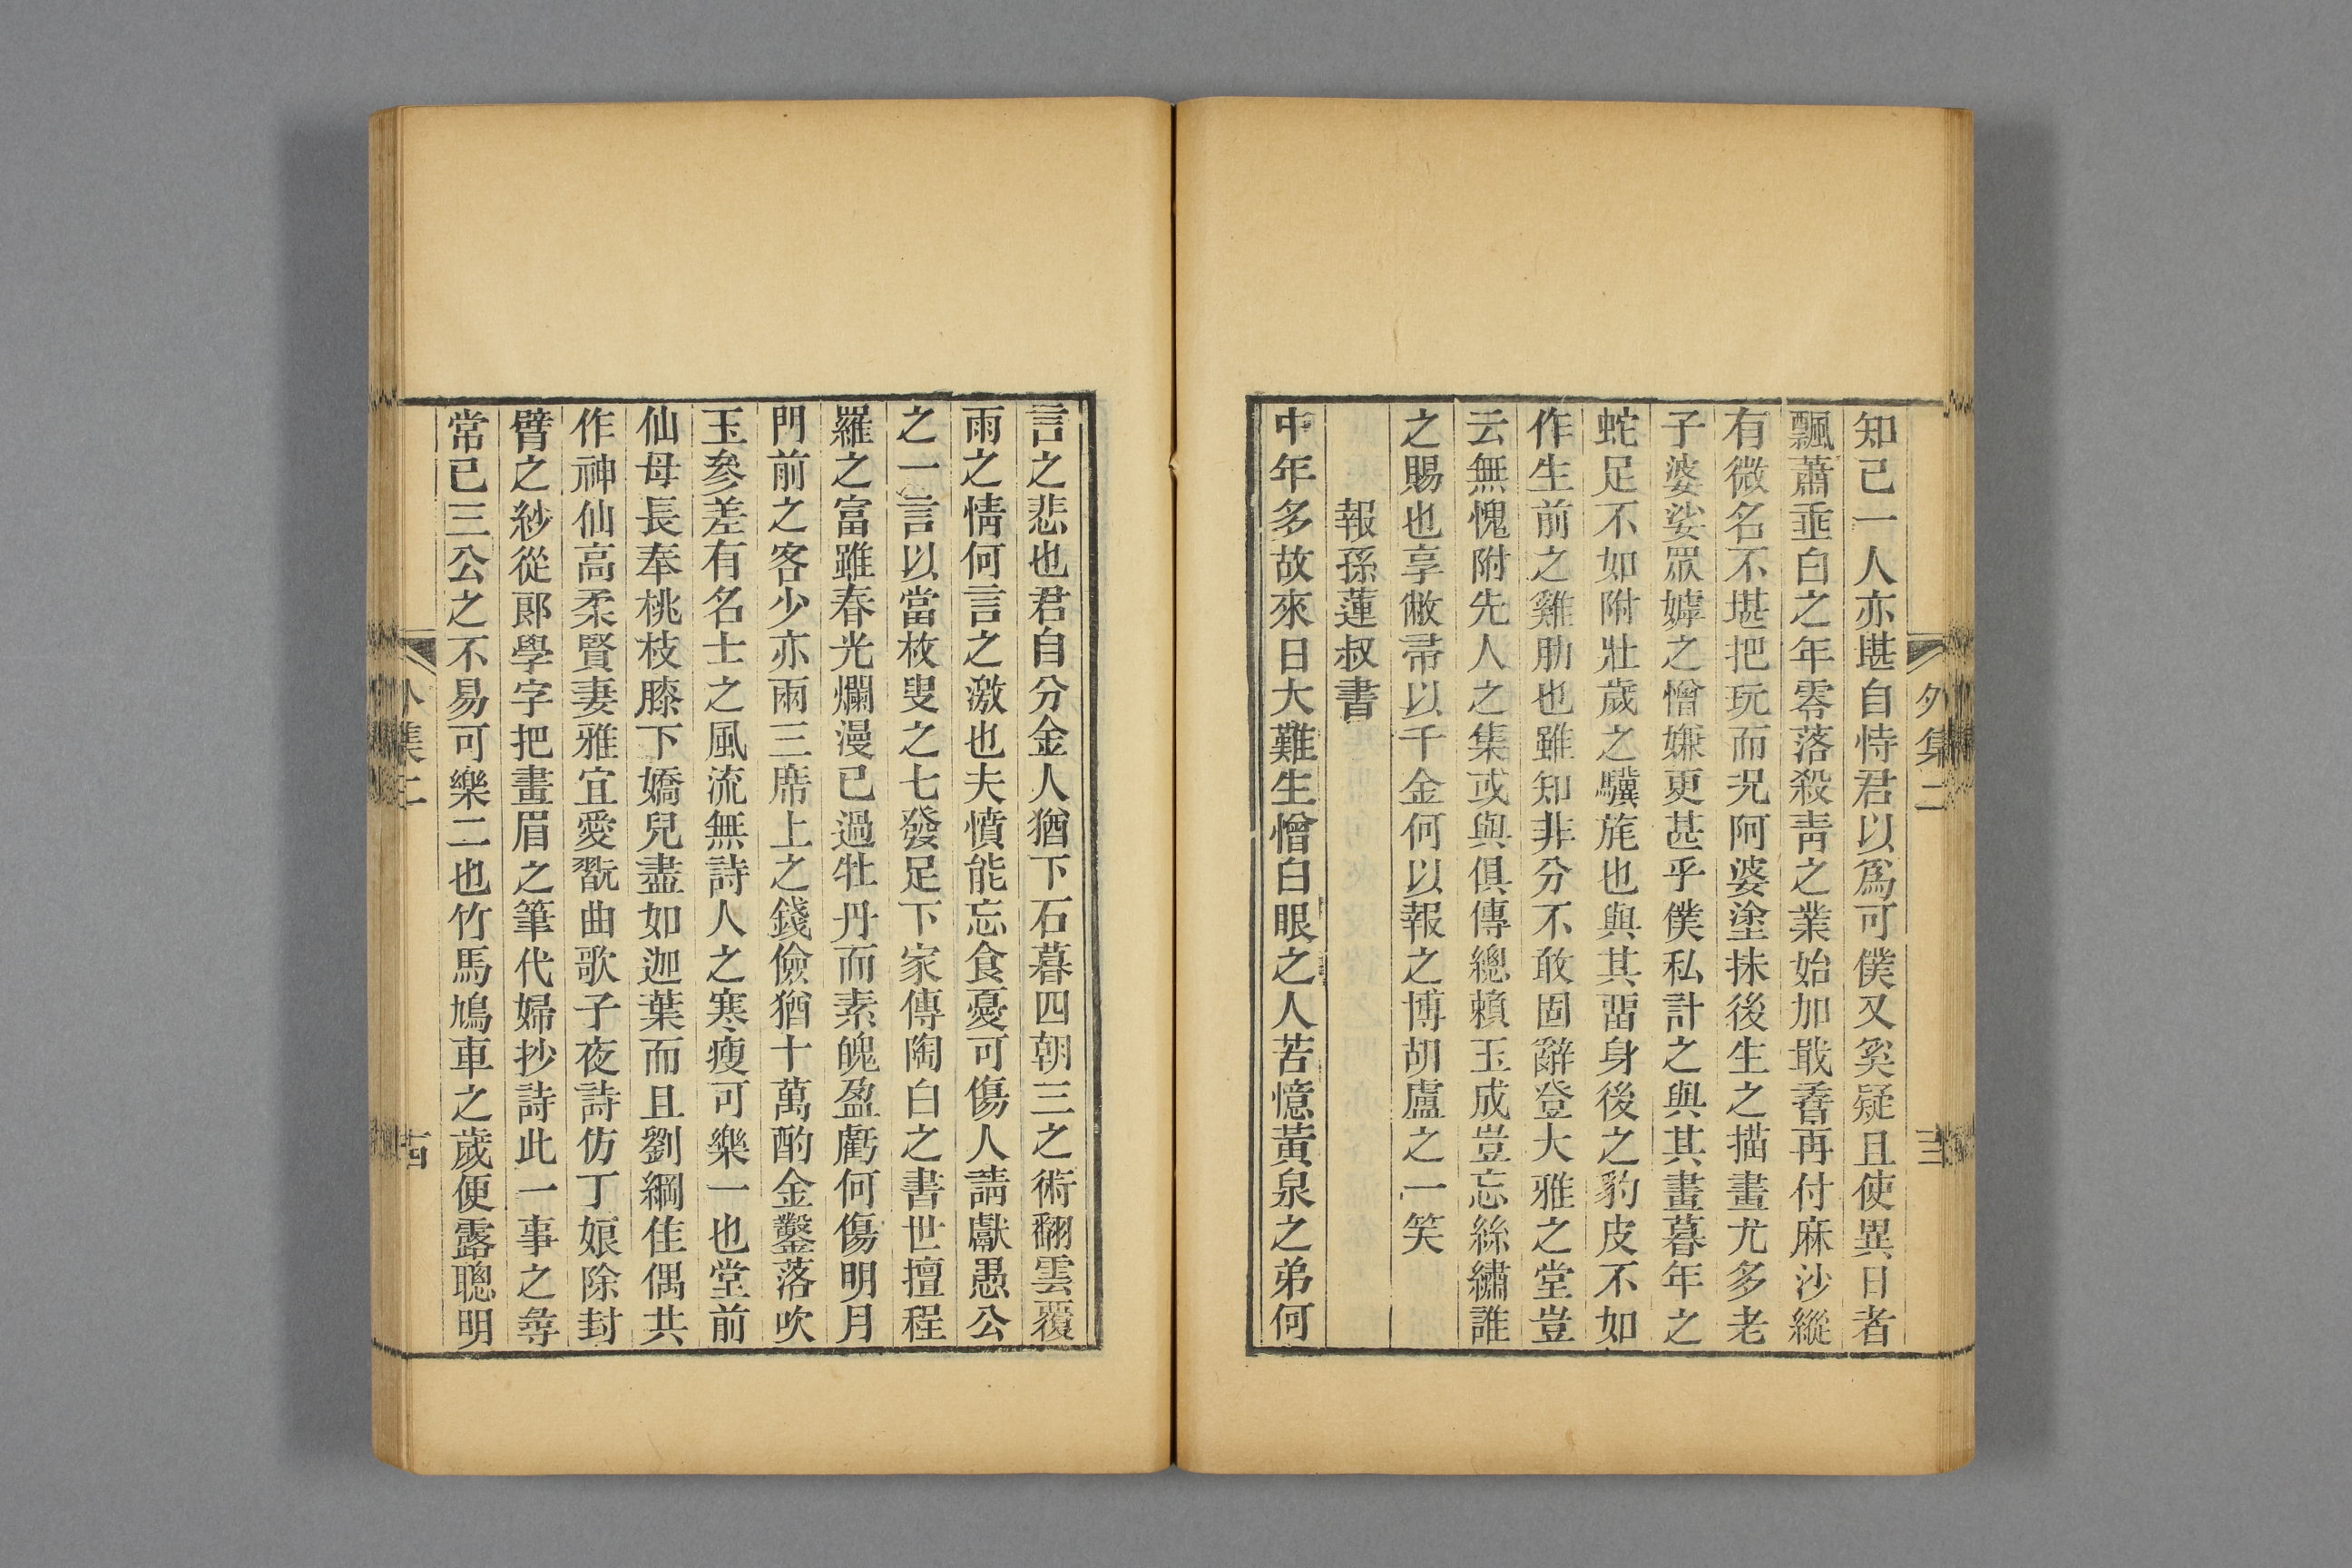 外集二
三
知己一人亦堪自恃君以爲可僕又奚疑且使異日者
飄蕭垂白之年零落殺靑之業始加戢香再付麻沙縱
有微名不堪把玩而況阿婆塗抹後生之描畫尤多老
子婆娑眾嫭之憎嫌更甚乎僕私計之與其畫暮年之
蛇足不如附壯歲之驥旄也與其畱身後之豹皮不如
作生前之雞肋也雖知非分不敢固辭登大雅之堂豈
云無愧附先人之集或與俱傳總賴玉成豈忘絲繡誰
之賜也享敝帚以千金何以報之博胡盧之一笑
報孫蓮叔書
中年多故來日大難生憎白眼之人苦憶黃泉之弟何
言之悲也君自分金人猶下石暮四朝三之術翻雲覆
雨之情何言之激也夫憤能忘食憂可傷人請獻愚公
之一言以當枚叟之七發足下家傳陶白之書世擅程
羅之富雖春光爛漫已過牡丹而素魄盈虧何傷明月
門前之客少亦兩三席上之錢儉猶十萬酌金鑿落吹
玉參差有名士之風流無詩人之寒瘦可樂一也堂前
仙母長奉桃枝膝下嬌兒盡如迦葉而且劉綱佳偶共
作神仙高柔賢妻雅宜愛翫曲歌子夜詩仿丁娘除封
臂之紗從郎學字把畫眉之筆代婦抄詩此一事之尋
常已三公之不易可樂二也竹馬鳩車之歲便露聰明
集二